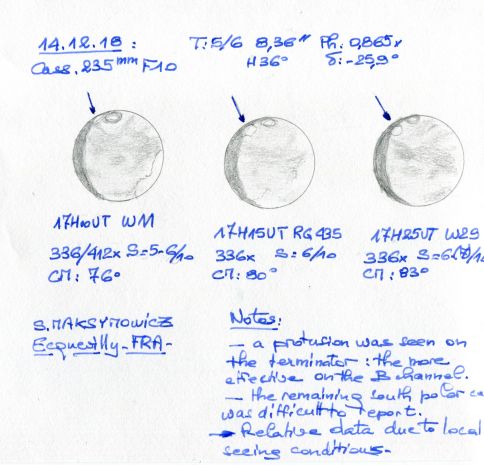 14.12.18 : T: 5/6 8,36" Ph: 0,865x
Cass. 235mm F10 H36° δ: -25,9°
17H00UT W11 17H15UT RG 435 17H25UT W29
336/412x S=5-6/10 336x S: 6/10 336x S=6-7/10
CM: 76° CM: 80° CM: 83°
S. MAKSYMOWICZ
Ecquevilly - FRA -
Notes:
- a protusion was seen on
the terminator : the more
effective on the B channel.
- the remaining south polar
was difficult to report.
→ Relative data due to local
seeing conditions -